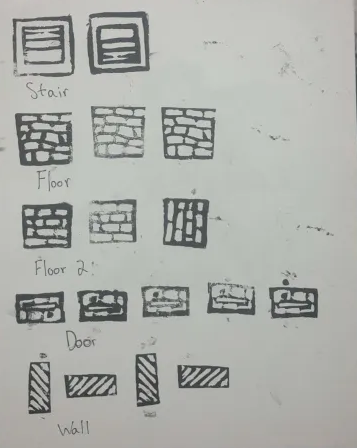 Stair
Floor
Floor 2
Door
Wall